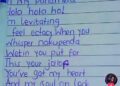 lolo lolo hol
m levitating
feel ectacy when you
whisper nakupenda
Watin you put for
This your jalof
You've got my heart
And my soul on lock